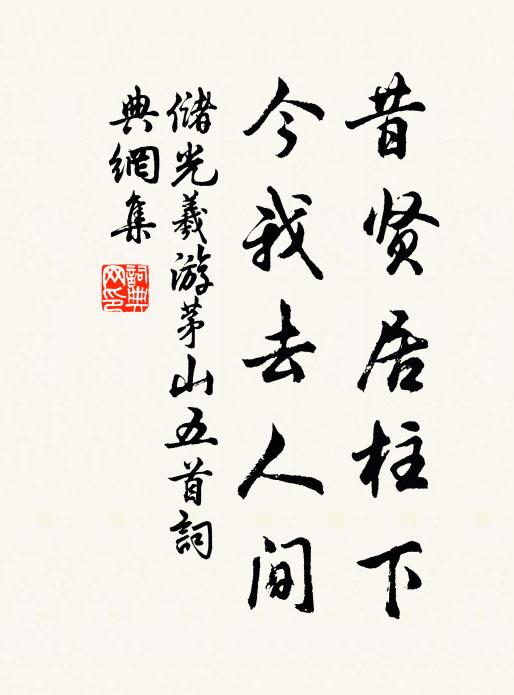 昔贤居柱下
今我去人间
儲光羲游茅山五首詞
典網集
詞典網印